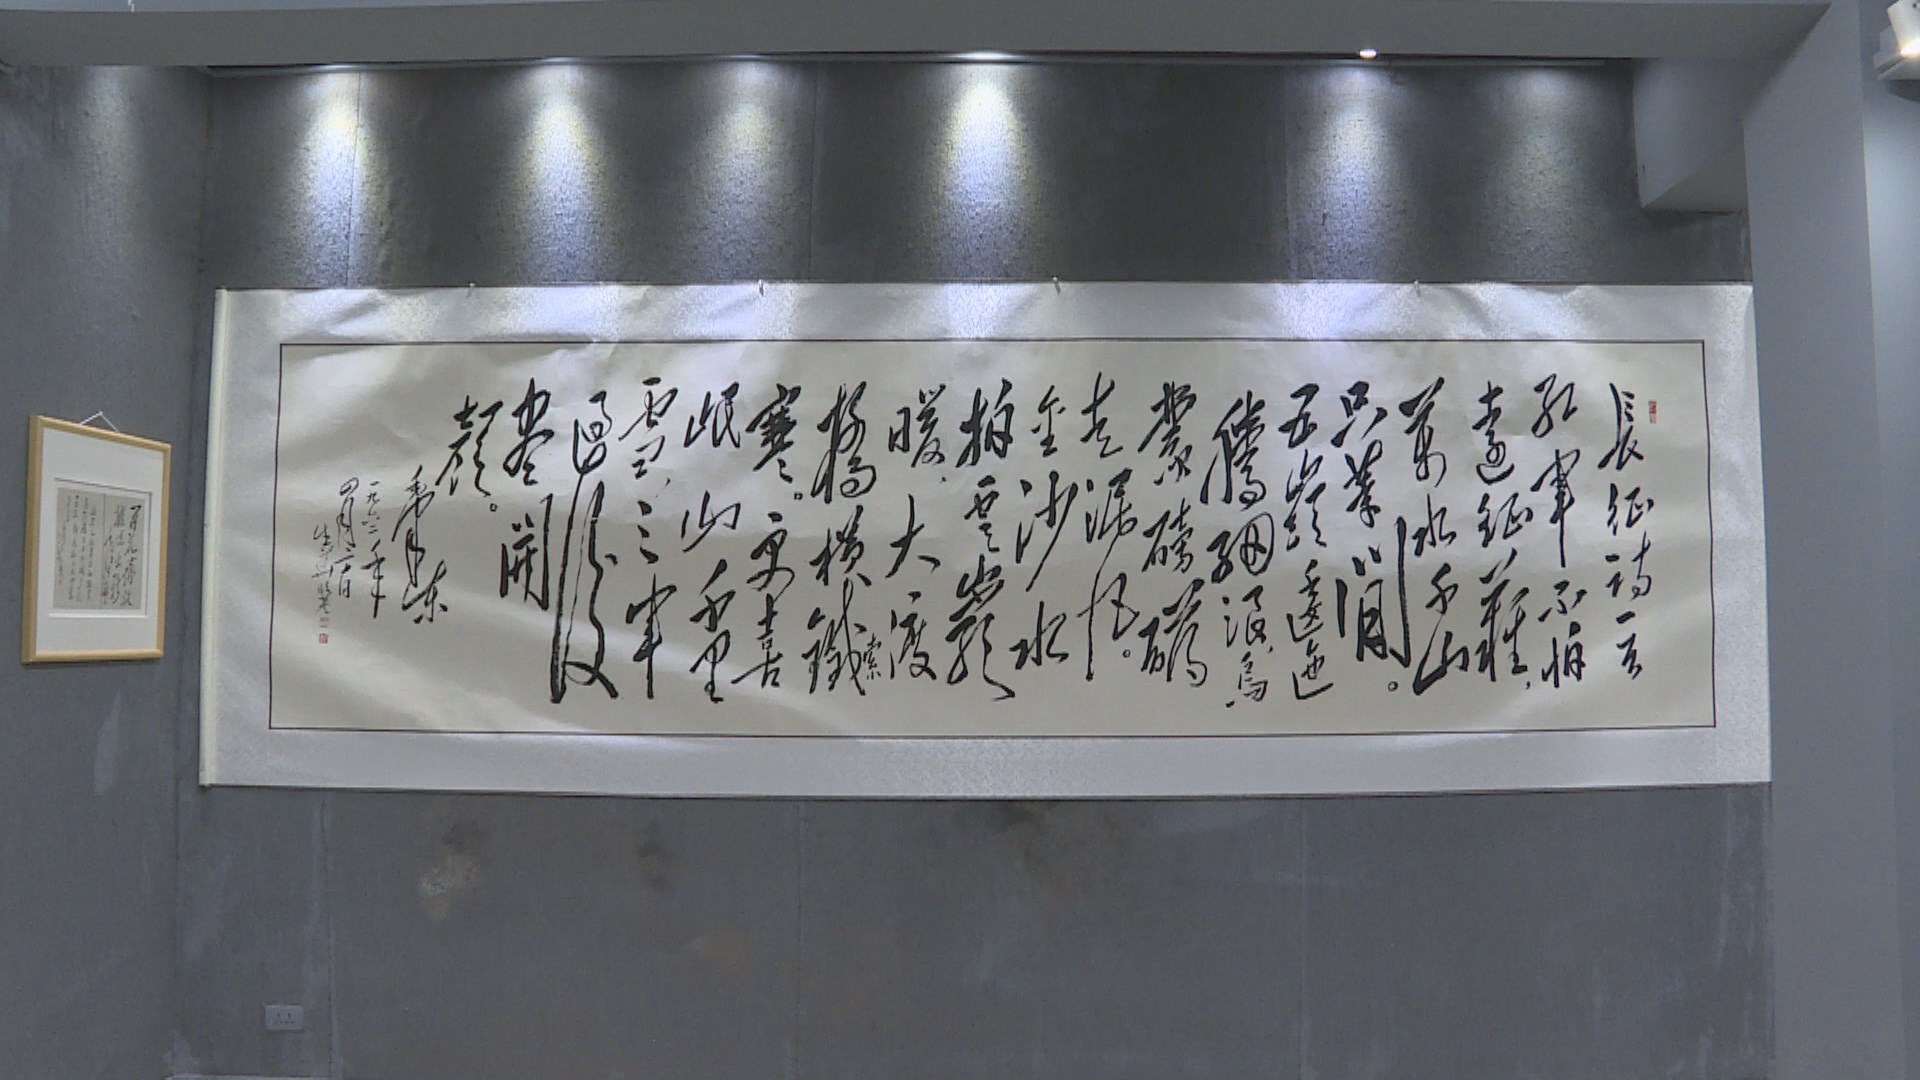 長征詩一首
紅軍不怕
遠征難,
萬水千山
只等閒。
五嶺逶迤
騰細浪,烏
蒙磅礴
走泥丸。
金沙水
拍雲崖
暖,大渡
橋橫鐵索
寒。更喜
岷山千里
雪,三軍
過後
盡開
顏。
毛澤東
一九六二年
四月二十日